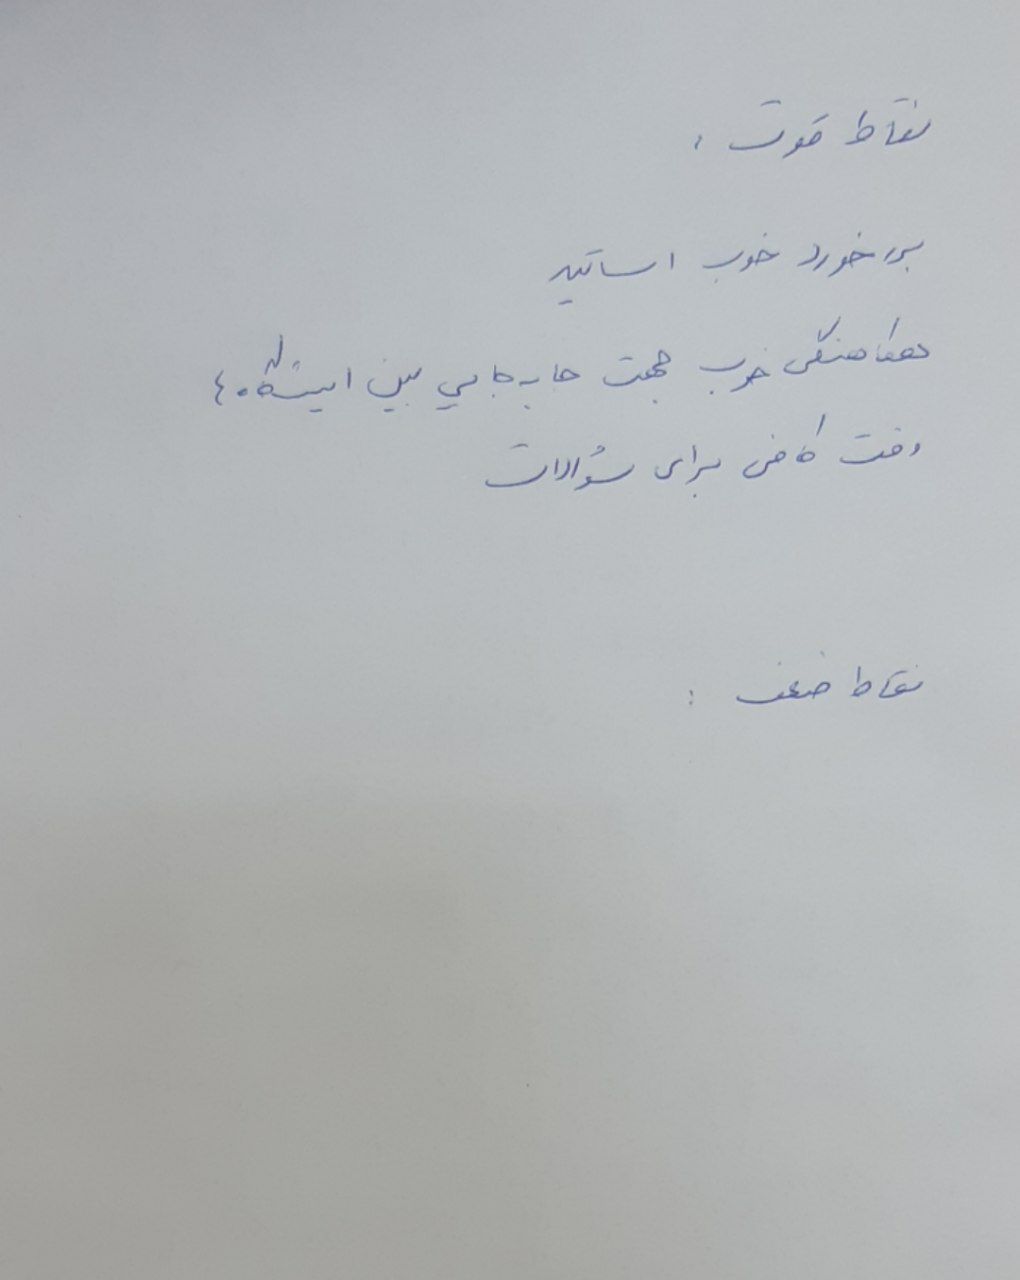 نقاط قوت :
برخورد خوب اساتید
هماهنگی خوب جهت جا به جایی بین ایستگاه ها
وقت کافی برای سؤالات
نقاط ضعف :